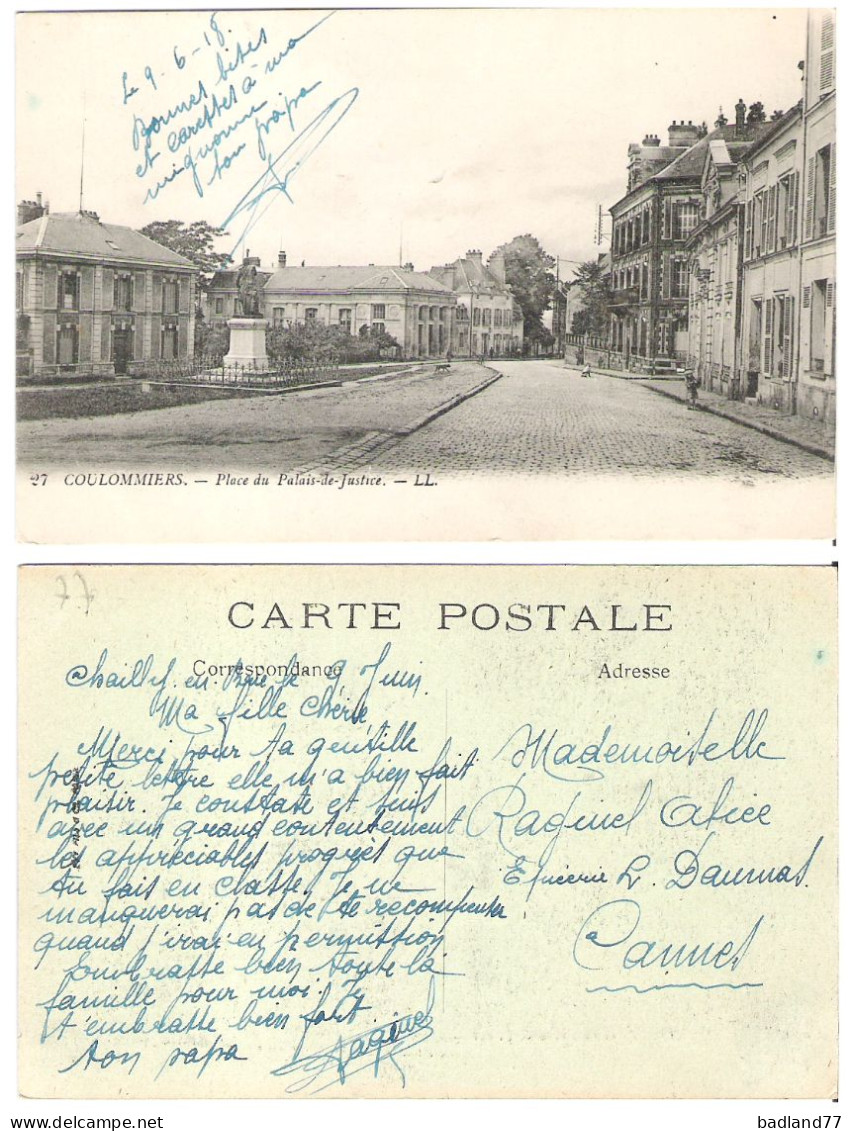 Le 9-6-18.
Bonnes bises
et caresses à ma
mignonne
ton papa
27 COULOMMIERS. — Place du Palais-de-Justice. — LL.
77
CARTE POSTALE
Correspondance
Adresse
Chailly en Brie le 9 Juin
Ma fille chérie,
Merci pour ta gentille
petite lettre elle m'a bien fait
plaisir. Je constate et suis
avec un grand contentement
les appréciables progrès que
tu fais en classe. Je ne
manquerai pas de te recompenser
quand j'irai en permission
Embrasse bien toute la
famille pour moi. Je
t'embrasse bien fort
ton papa
Raginel
Mademoiselle
Raginel Alice
Epicerie L. Daumas.
Cannes
badland77
delcampe.net